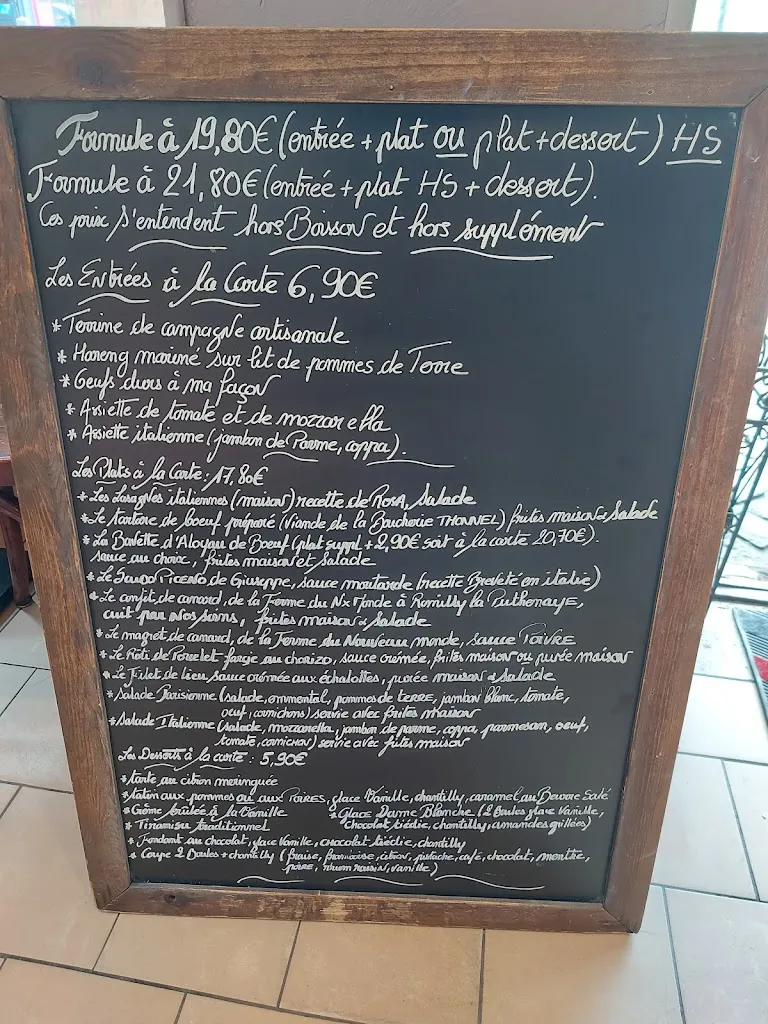 Formule à 19,80€ (entrée + plat ou plat + dessert) HS
Formule à 21,80€ (entrée + plat HS + dessert).
Ces prix s'entendent hors Boisson et hors supplément
Les Entrées à la Carte 6,90€
* Terrine de campagne artisanale
* Hareng mariné sur lit de pommes de Terre
* Oeufs durs à ma façon
* Assiette de tomate et de mozzarella
* Assiette italienne (jambon de Parme, coppa).
Les Plats à la Carte : 17,80€
* Les Lasagnes italiennes (maison) recette de Rosa, Salade
* Le tartare de boeuf préparé (viande de la Boucherie THONNEL) frites maison & Salade
* La Bavette d'Aloyau de Boeuf (plat suppl + 2,90€ soit à la carte 20,70€).
sauce au choix, frites maison et salade
* Le Sauro Piceno de Giuseppe, sauce moutarde (recette Breveté en italie)
* Le confit de canard, de la Ferme du Nx Monde à Romilly la Puthenaye,
cuit par nos soins, frites maison & Salade
* Le magret de canard, de la Ferme du Nouveau monde, sauce POIVRE
* Le Rôti de Porcelet farçie au chorizo, sauce crémée, frites maison ou purée maison
* Le Filet de Lieu sauce crémée aux échalottes, purée maison & salade
* Salade Parisienne (salade, emmental, pommes de terre, jambon blanc, tomate,
oeuf, cornichons) servie avec frites maison
* Salade Italienne (salade, mozzarella, jambon de parme, coppa, parmesan, oeuf,
tomate, cornichon) servie avec frites maison
Les Desserts à la carte : 5,90€
* tarte au citron meringuée
* tatin aux pommes ou aux POIRES, glace Vanille, chantilly, caramel au Beurre Salé
* Crème brûlée à la Vanille * Glace Dame Blanche (2 Boules glace Vanille,
* Tiramisu traditionnel chocolat tiédie, chantilly, amandes grillées)
* Fondant au chocolat, glace Vanille, chocolat tiédie, chantilly
* Coupe 2 Boules + chantilly (fraise, framboise, citron, pistache, café, chocolat, menthe,
poire, rhum raisin, vanille)